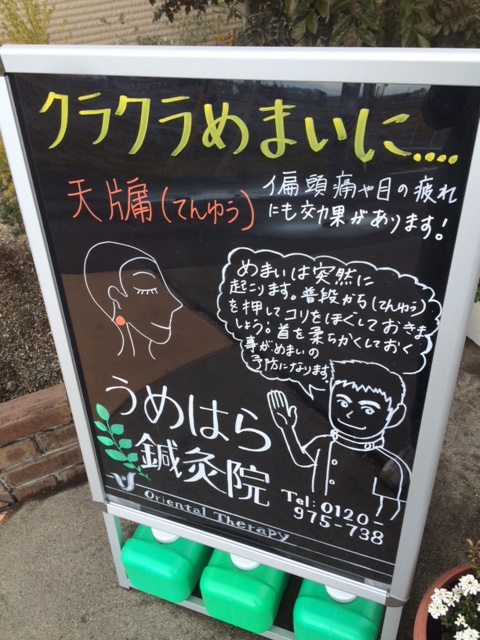 クラクラめまいに....
天牖(てんゆう)
イ扁頭痛や目の疲れ
にも効果があります!
めまいは突然に
起こります。普段から(てんゆう)
を押してコリをほぐしておきま
しょう!首を柔らかくしておく
事がめまいの
予防になります
うめはら
鍼灸院
Oriental Therapy
Tel:0120-
975-738